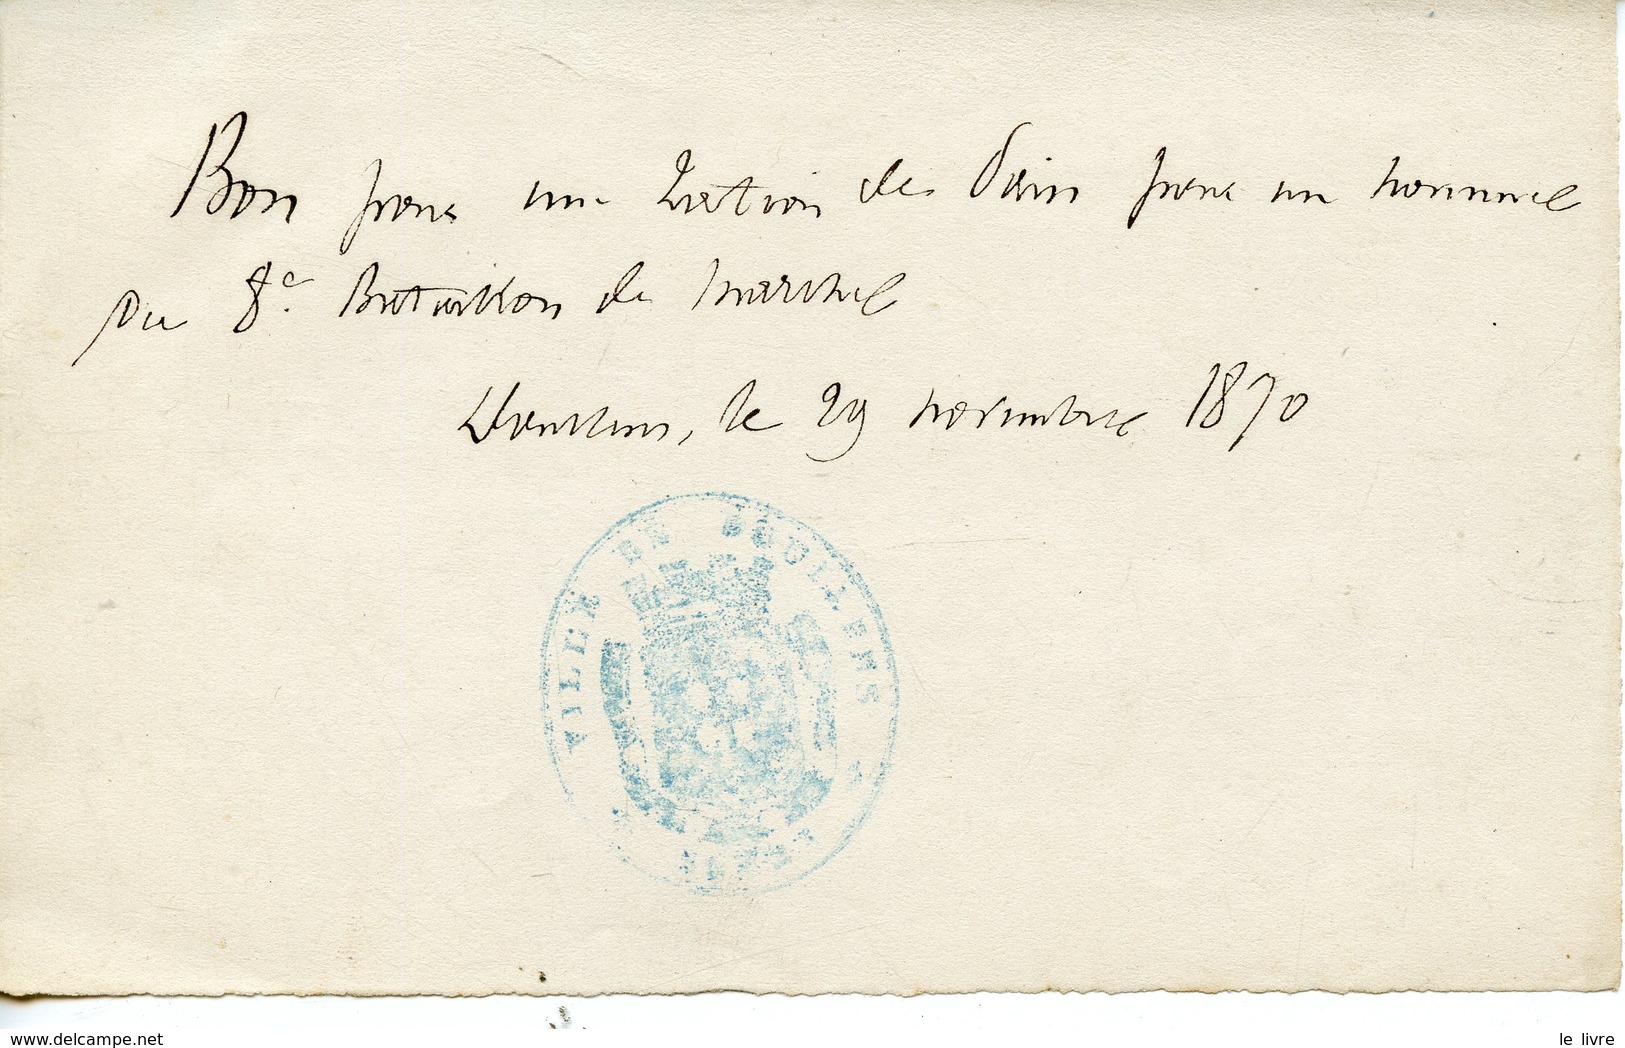 Bon pour une ration de pain pour un homme
du 8e Bataillon de marche
le 29 novembre 1870
VILLE DE
delcampe.net
le livre